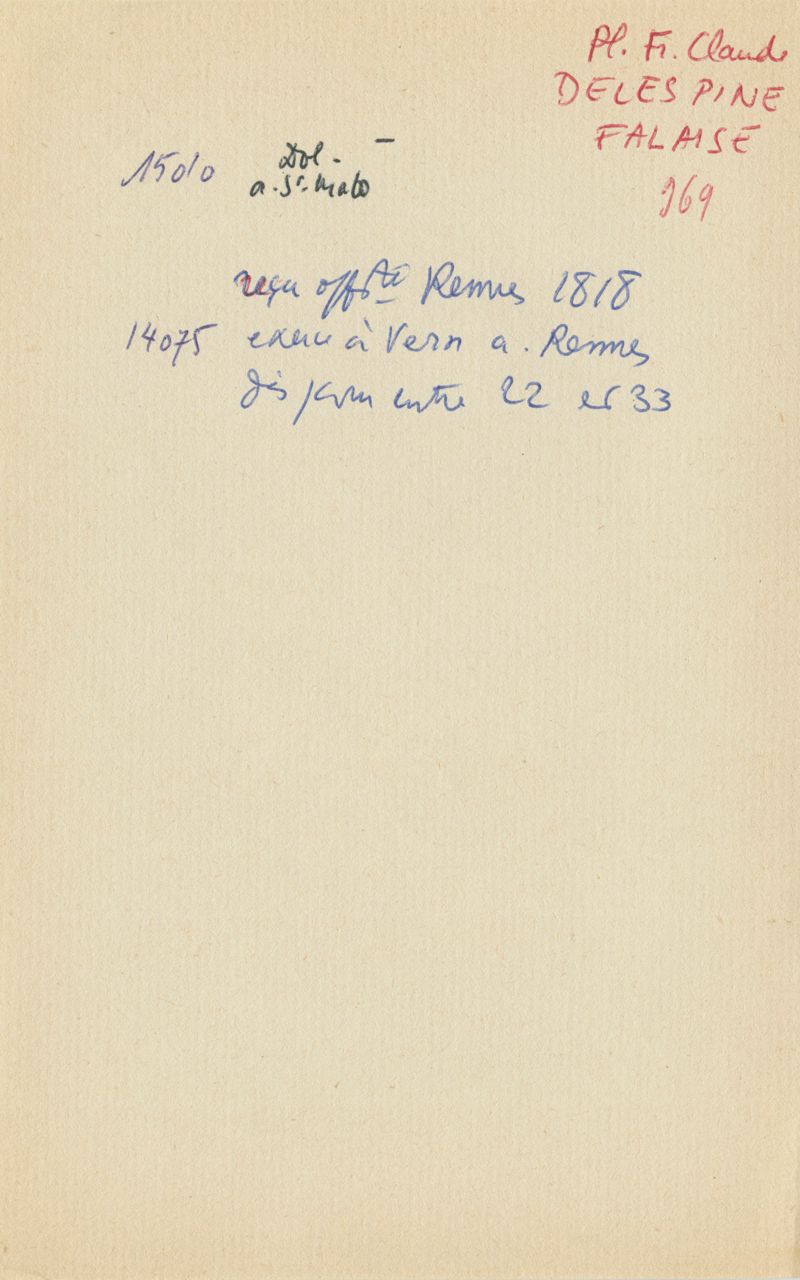 Pl. Fr. Claude
DELESPINE
FALAISE
969
15010 Dol - —
a. St. Malo
reçu off té Rennes 1818
14075 exerce à Vern a. Rennes
disparu entre 22 et 33